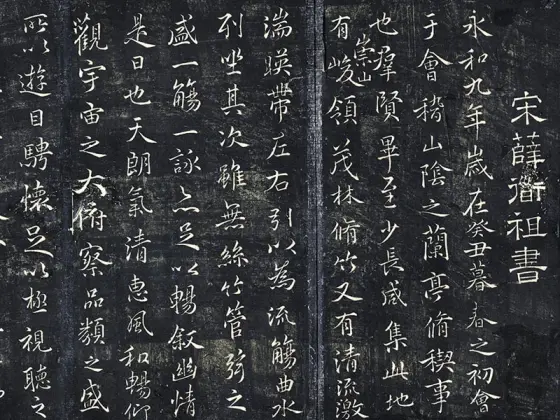 宋薛衜祖書
永和九年歲在癸丑暮春之初會
于會稽山陰之蘭亭脩禊事
也羣賢畢至少長咸集此地
有崇山峻領茂林脩竹又有清流激
湍暎帶左右引以為流觴曲水
列坐其次雖無絲竹管弦之
盛一觴一詠亦足以暢敘幽情
是日也天朗氣清惠風和暢仰
觀宇宙之大俯察品類之盛
所以遊目騁懷足以極視聽之